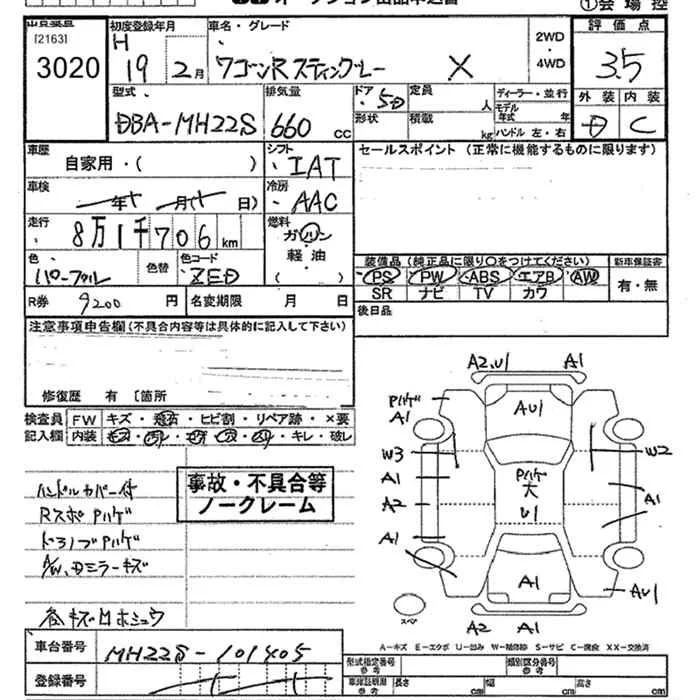 [2163]
3020
初度登録年月
H 19 2月
車名・グレード
ワゴンRスティングレー X
2WD
・4WD
評価点
3.5
外装 内装
D C
型式
DBA-MH22S
排気量
660 cc
ドア 5D
定員 人
形状
積載 kg
ディーラー・並行
モデル年式 年
ハンドル 左・右
車歴
自家用・( )
シフト
IAT
セールスポイント (正常に機能するものに限ります)
車検
年 月( 日)
冷房
AAC
走行
8万1千706km
燃料
ガソリン
軽油
( )
色
パープル
色替
色コード
ZED
装備品 (純正品に限り○をつけてください)
PS PW ABS エアB AW
SR ナビ TV カワ
新車保証書
有・無
R券 9200円
名変期限 月 日
後日品
注意事項申告欄(不具合内容等は具体的に記入して下さい)
修復歴 有 [箇所
検査員 FW キズ・飛石・ヒビ割・リペア跡・×要
記入欄 内装 ・キレ・破レ
ハンドルカバー付
RスポPハゲ
ドアノブPハゲ
A/W、Dミラーキズ
各キズ凹ホシュウ
事故・不具合等
ノークレーム
A2,U1 A1
Pハゲ
A1
AU1
W3
W2
A1
Pハゲ
大
U1
A2
A1
A1
A1
AU1
スペア
A2 A1
A-キズ E-エクボ U-凹み W-補修跡 S-サビ C-腐食 XX-交換済
車台番号
MH22S-101405
登録番号
型式指定番号
参考
類別区分番号
参考
車検証記載
参考
長さ cm 幅 cm 高さ cm